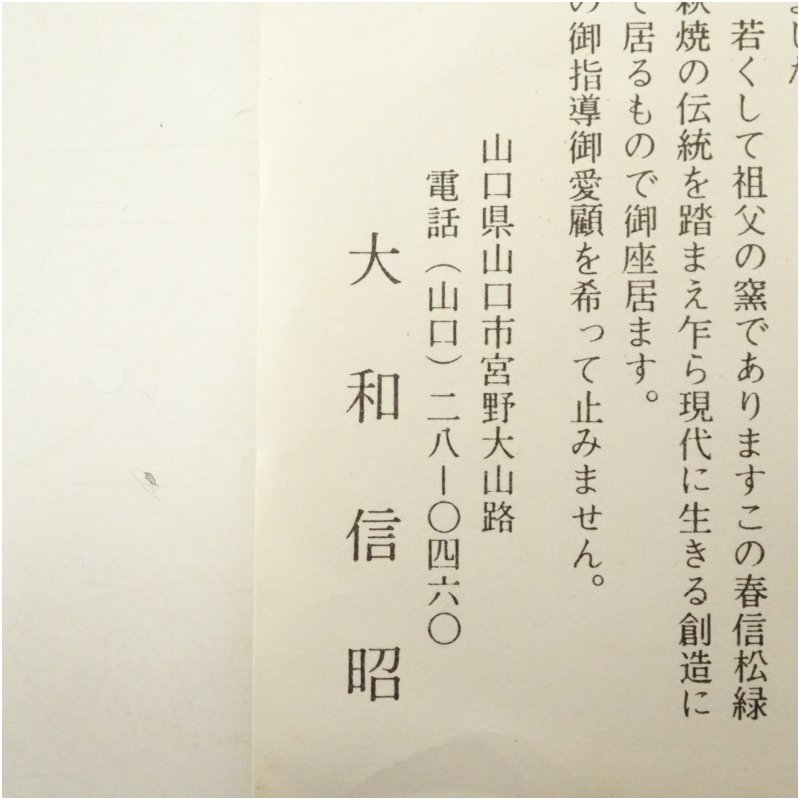 ました
若くして祖父の窯でありますこの春信松緑
萩焼の伝統を踏まえ乍ら現代に生きる創造に
て居るもので御座居ます。
の御指導御愛顧を希って止みません。
山口県山口市宮野大山路
電話（山口）二八―〇四六〇
大和信昭